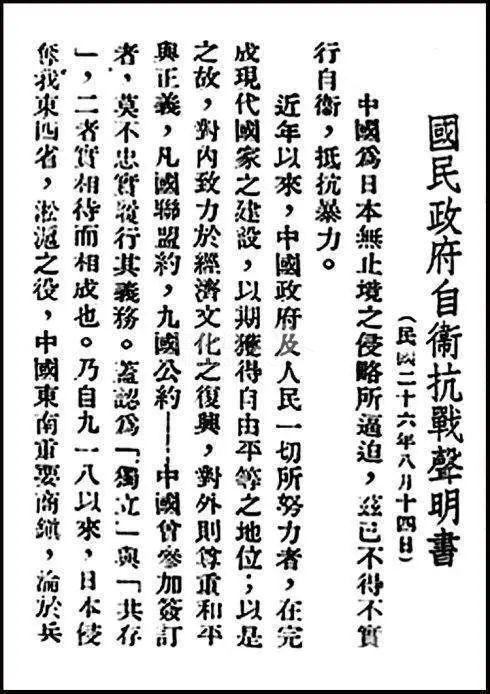 國民政府自衞抗戰聲明書
(民國二十六年八月十四日)
中國爲日本無止境之侵略所逼迫，茲已不得不實
行自衞，抵抗暴力。
近年以來，中國政府及人民一切所努力者，在完
成現代國家之建設，以期獲得自由平等之地位；以是
之故，對內致力於經濟文化之復興，對外則尊重和平
與正義，凡國聯盟約，九國公約——中國曾參加簽訂
者，莫不忠實履行其義務。蓋認爲「獨立」與「共存
」，二者實相待而相成也。乃自九一八以來，日本侵
奪我東四省，淞滬之役，中國東南重要商鎭，淪於兵